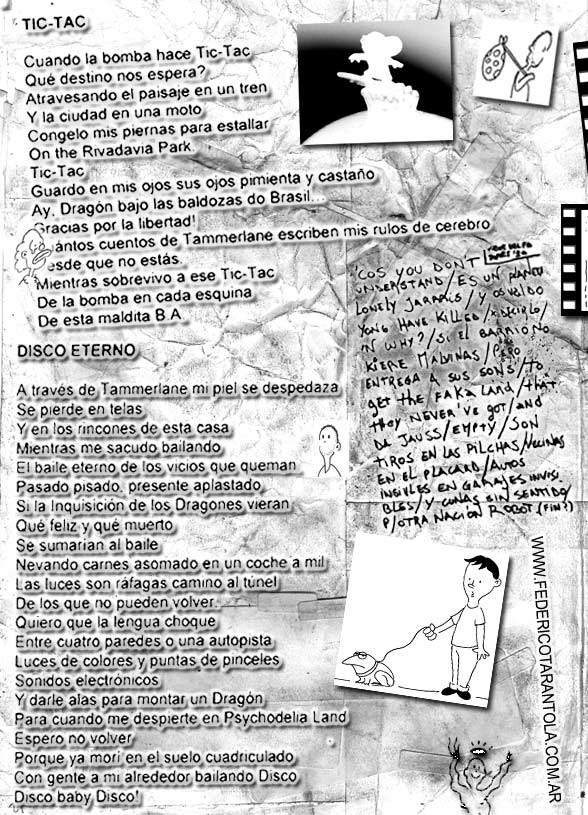 TIC-TAC
Cuando la bomba hace Tic-Tac
Qué destino nos espera?
Atravesando el paisaje en un tren
Y la ciudad en una moto
Congelo mis piernas para estallar
On the Rivadavia Park.
Tic-Tac
Guardo en mis ojos sus ojos pimienta y castaño
Ay, Dragón bajo las baldozas do Brasil...
Gracias por la libertad!
uántos cuentos de Tammerlane escriben mis rulos de cerebro
esde que no estás.
Mientras sobrevivo a ese Tic-Tac
De la bomba en cada esquina
De esta maldita B.A.
DISCO ETERNO
A través de Tammerlane mi piel se despedaza
Se pierde en telas
Y en los rincones de esta casa
Mientras me sacudo bailando
El baile eterno de los vicios que queman
Pasado pisado, presente aplastado
Si la Inquisición de los Dragones vieran
Qué feliz y qué muerto
Se sumarían al baile
Nevando carnes asomado en un coche a mil
Las luces son ráfagas camino al túnel
De los que no pueden volver.
Quiero que la lengua choque
Entre cuatro paredes o una autopista
Luces de colores y puntas de pinceles
Sonidos electrónicos
Y darle alas para montar un Dragón
Para cuando me despierte en Psychodelia Land
Espero no volver
Porque ya morí en el suelo cuadriculado
Con gente a mi alrededor bailando Disco
Disco baby Disco!
'COS YOU DON'T
UNDERSTAND / ES UN PLANETA
LONELY / Y OSVALDO
YONG HAVE KILLED / X DECIRLO /
N' WHY? / SI EL BARRIO NO
KIERE MALVINAS / PERO
ENTREGA A SUS SONS / TO
GET THE FAKA LAND / THAT
THEY NEVER'VE GOT / AND
DA JAUSS / EMPTY / SON
TIROS EN LAS PILCHAS / VECINAS
EN EL PLACARD / AUTOS
EN GARAJES INVISI
BLES / Y CUNAS SIN SENTIDO
P/OTRA NACION ROBOT (FIN?)
WWW.FEDERICOTARANTOLA.COM.AR